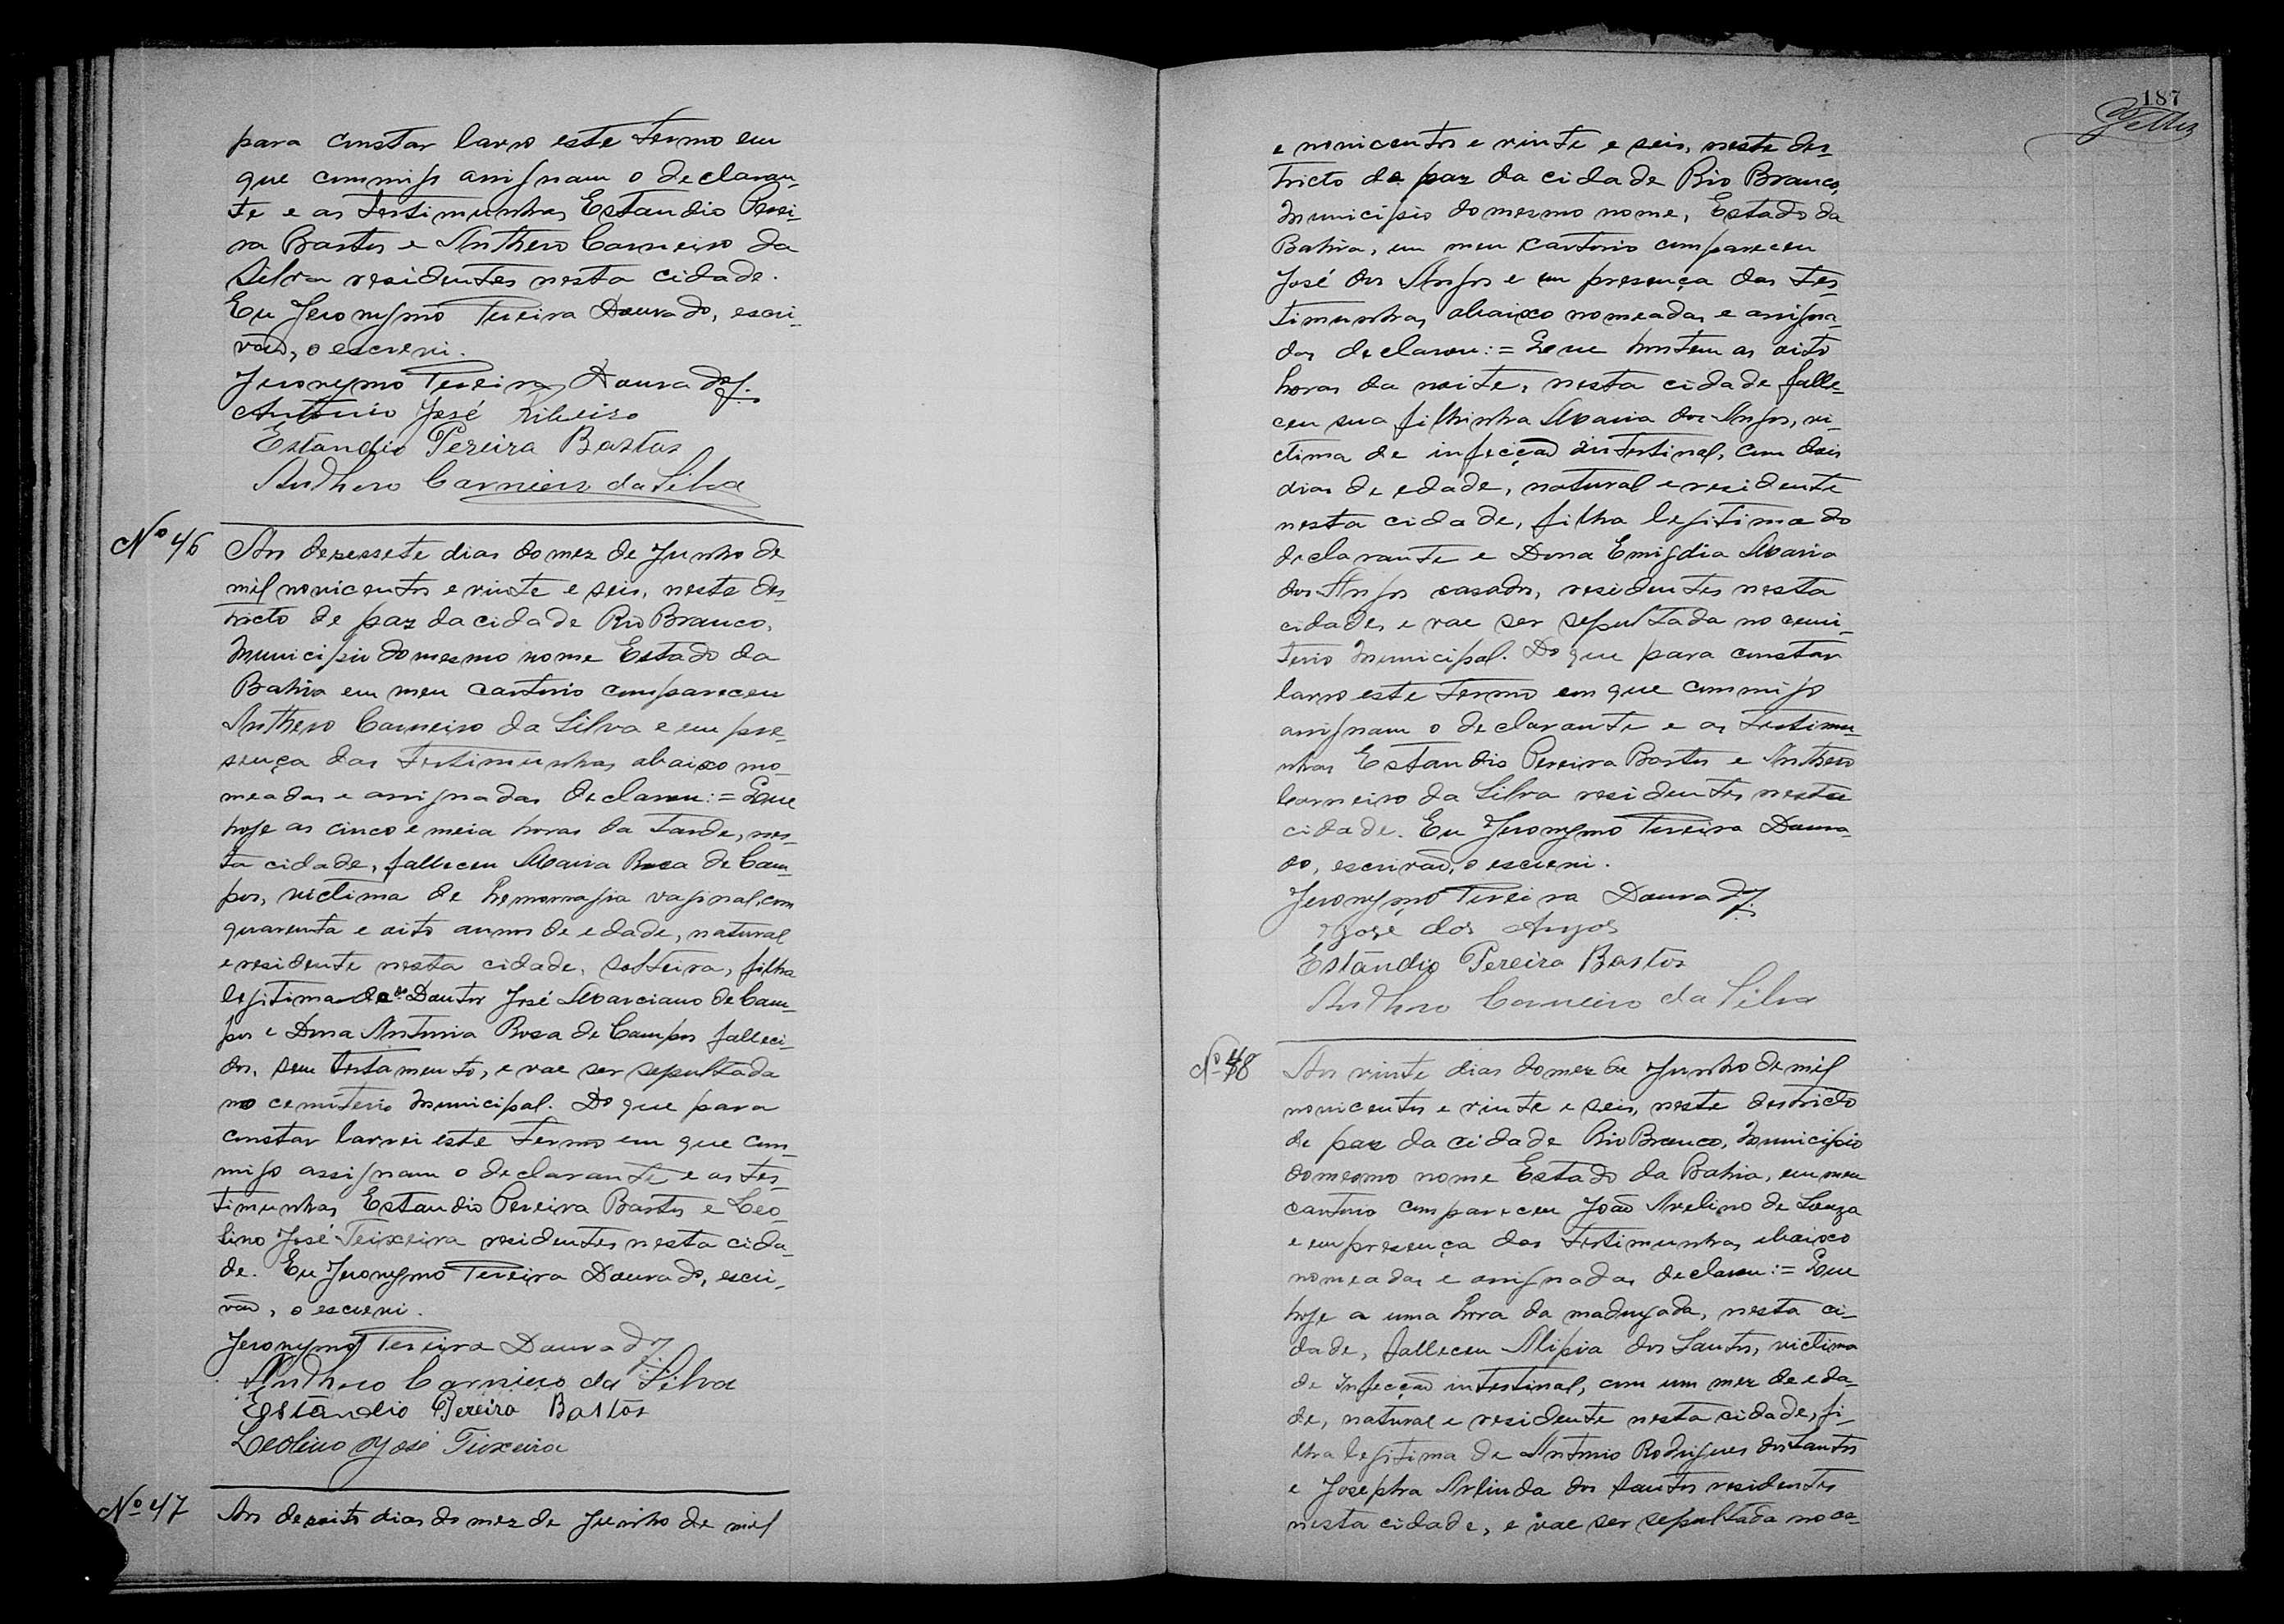 para constar lavro este termo em
que commigo assignam o declaran-
te e as testimunhas Estandio Perei-
ra Bastos e Anthero Carneiro da
Silva residentes nesta cidade.
Eu Jeronymo Pereira Dourado, escri-
vão, o escrevi.
Jeronymo Pereira Dourado
Antonio José Ribeiro
Estandio Pereira Bastos
Anthero Carneiro da Silva
Nº 46 Aos dezessete dias do mez de Junho de
mil novicentos e vinte e seis, neste des-
tricto de paz da cidade Rio Branco,
Municipio do mesmo nome Estado da
Bahia em meu cartorio compareceu
Anthero Carneiro da Silva e em pre-
sença das testimunhas abaixo no-
meadas e assignadas declarou:= Que
hoje as cinco e meia horas da tarde, nes-
ta cidade, falleceu Maria Rosa de Cam-
pos, victima de hemorragia vaginal, com
quarenta e oito annos de edade, natural
e residente nesta cidade, solteira, filha
legitima do Doutor José Marciano de Cam-
pos e Dona Antonia Rosa de Campos falleci-
dos, sem testamento, e vae ser sepultada
no cemiterio Municipal. Do que para
constar lavrei este termo em que com-
migo assignam o declarante e as tes-
timunhas Estandio Pereira Bastos e Leo-
lino José Teixeira residentes nesta cida-
de. Eu Jeronymo Pereira Dourado, escri-
vão, o escrevi.
Jeronymo Pereira Dourado
Anthero Carneiro da Silva
Estandio Pereira Bastos
Leolino José Teixeira
Nº 47 Aos dezoito dias do mez de Junho de mil
187
e novicentos e vinte e seis, neste des-
tricto de paz da cidade Rio Branco,
Municipio do mesmo nome, Estado da
Bahia, em meu cartorio compareceu
José dos Anjos e em presença das tes-
timunhas abaixo nomeadas e assigna-
das declarou:= Que hontem as oito
horas da noite, nesta cidade falle-
ceu sua filhinha Maria dos Anjos, vi-
ctima de infecção intestinal, com dois
dias de edade, natural e residente
nesta cidade, filha legitima do
declarante e Dona Emigdia Maria
dos Anjos casados, residentes nesta
cidade, e vae ser sepultada no cemi-
terio Municipal. Do que para constar
lavro este termo em que commigo
assignam o declarante e as testimu-
nhas Estandio Pereira Bastos e Anthero
Carneiro da Silva residentes nesta
cidade. Eu Jeronymo Pereira Doura-
do, escrivão, o escrevi.
Jeronymo Pereira Dourado
José dos Anjos
Estandio Pereira Bastos
Anthero Carneiro da Silva
Nº 48 Aos vinte dias do mez de Junho de mil
novicentos e vinte e seis, neste destricto
de paz da cidade Rio Branco, Municipio
do mesmo nome Estado da Bahia, em meu
cartorio compareceu João Avelino de Souza
e em presença das testimunhas abaixo
nomeadas e assignadas declarou:= Que
hoje a uma hora da madrugada, nesta ci-
dade, falleceu Alipia dos Santos, victima
de infecção intestinal, com um mez de eda-
de, natural e residente nesta cidade, fi-
lha legitima de Antonio Rodrigues dos Santos
e Josepha Arlinda dos Santos residentes
nesta cidade, e vae ser sepultada no ce-